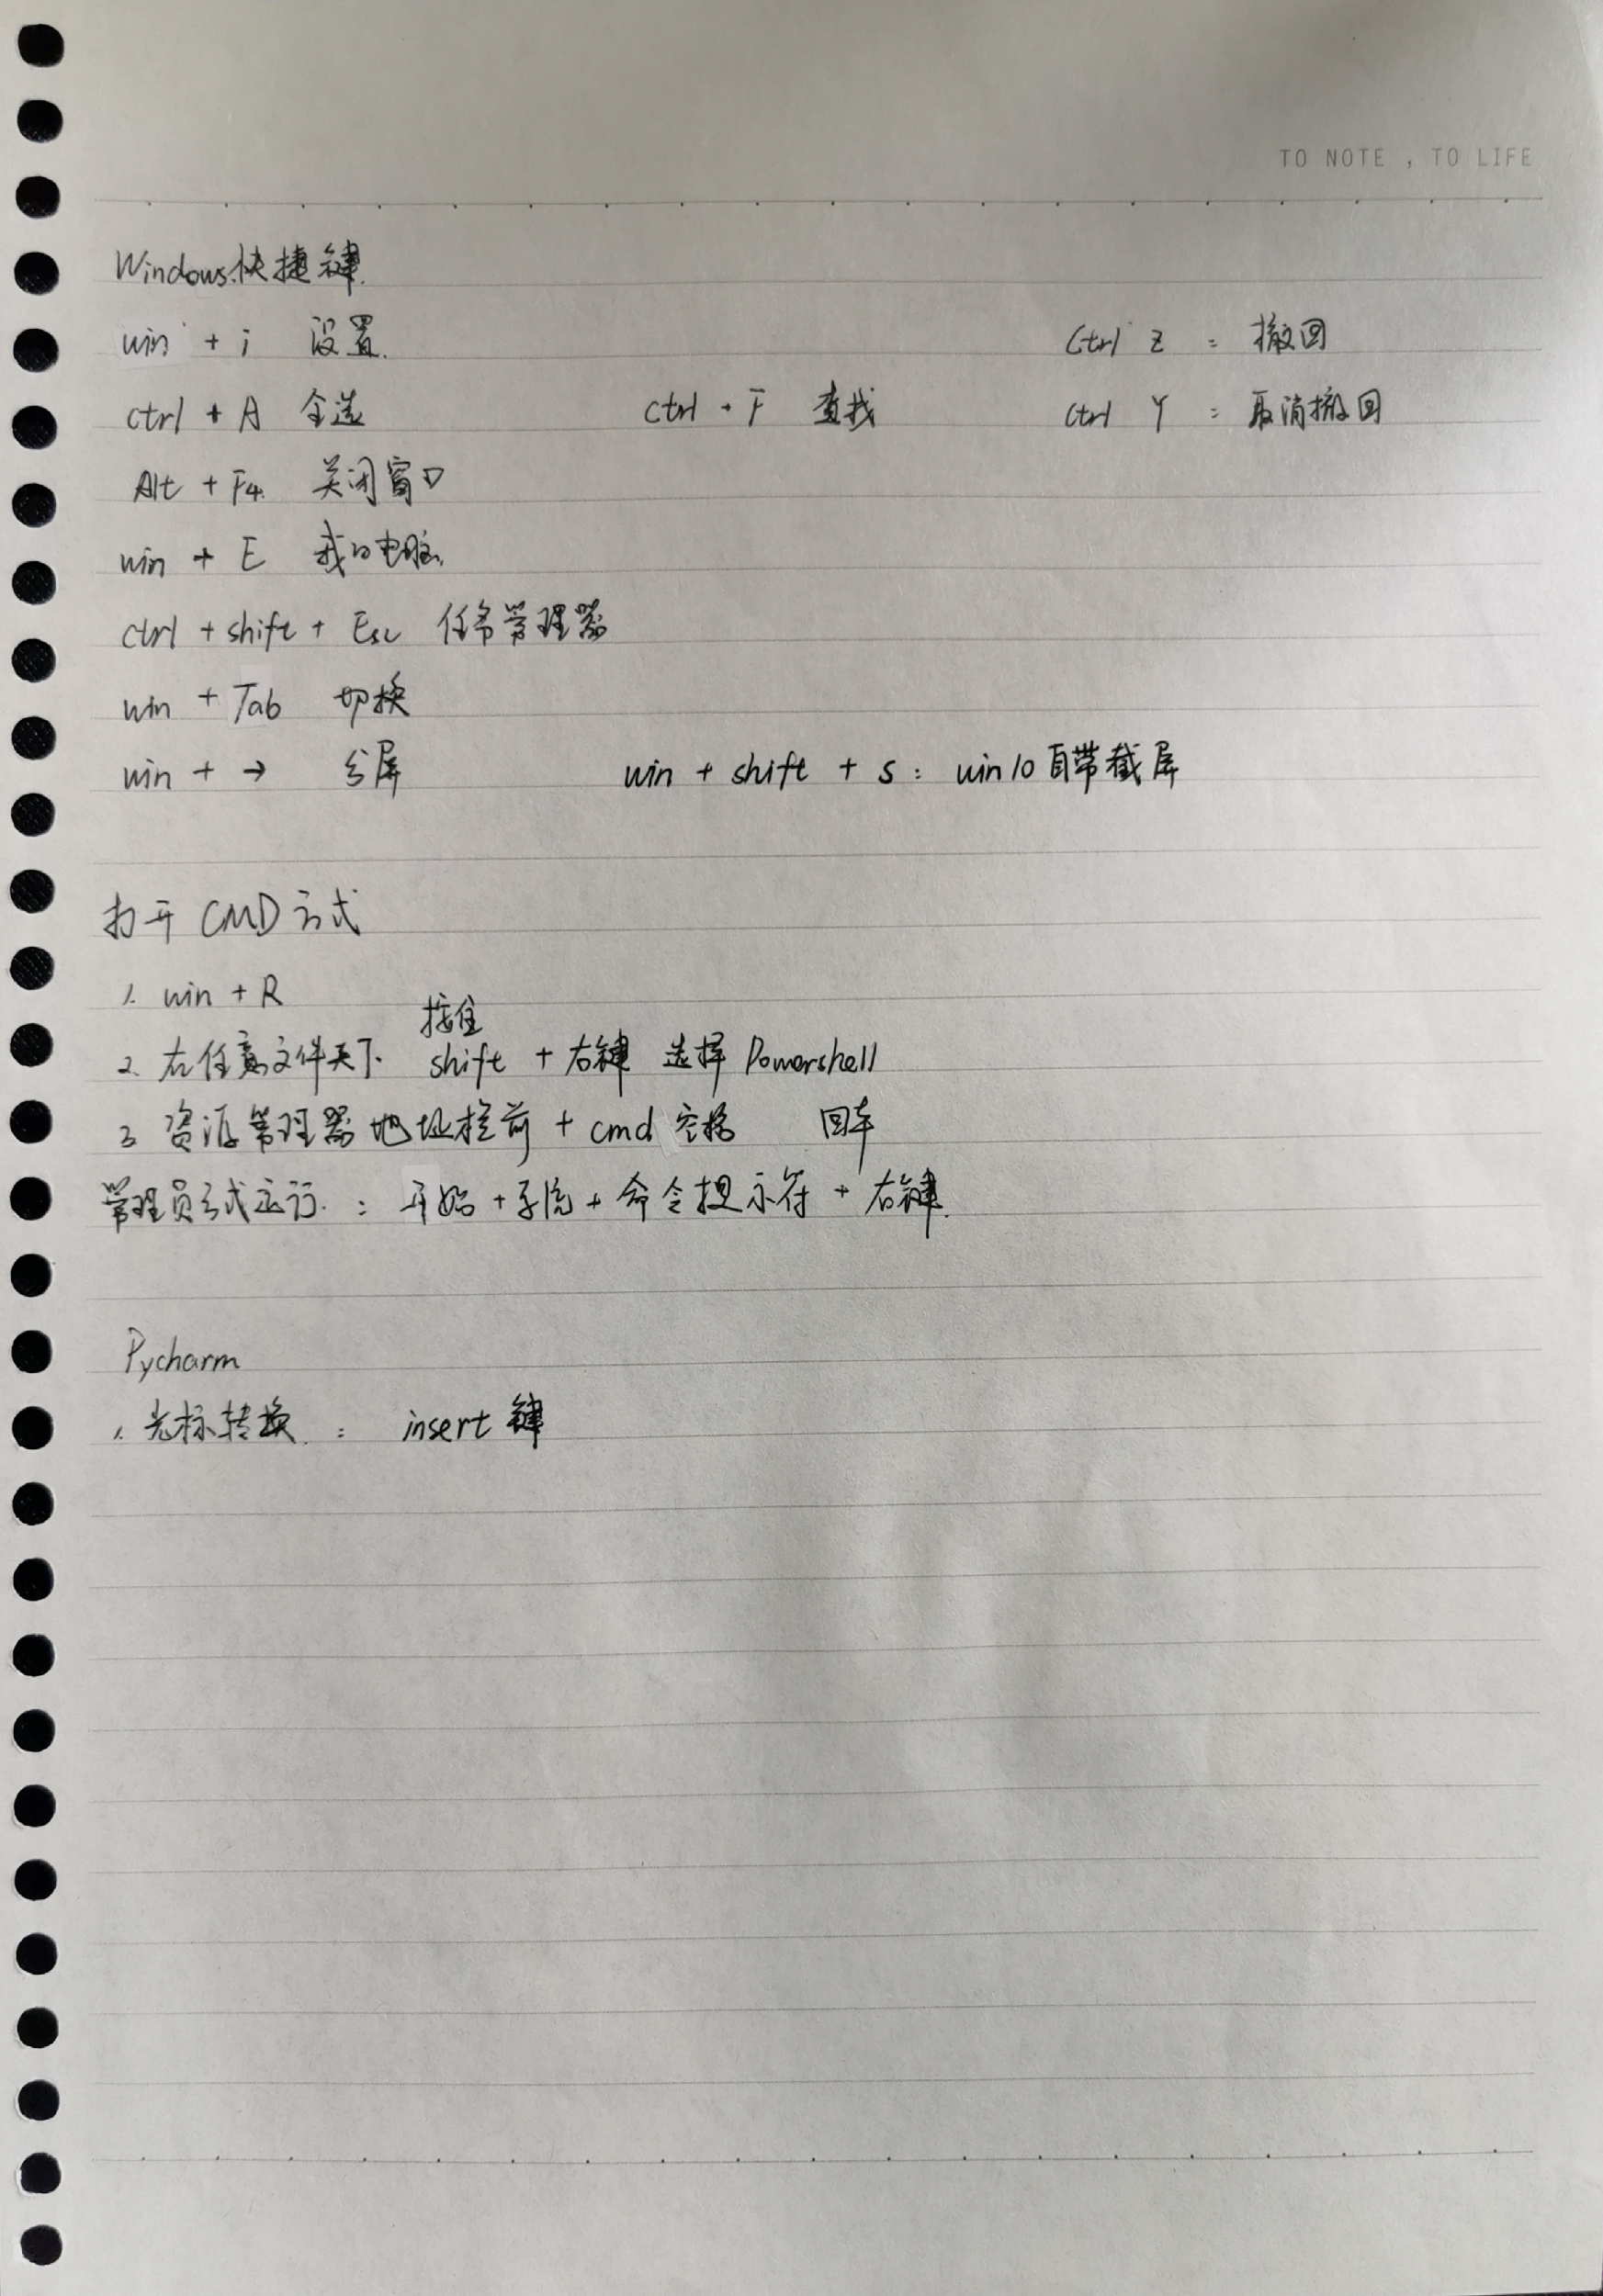 TO NOTE , TO LIFE
Windows快捷键.
win + i 设置. Ctrl Z : 撤回
ctrl + A 全选 ctrl + F 查找 Ctrl Y : 取消撤回
Alt + F4. 关闭窗口
win + E 我的电脑.
ctrl + shift + Esc 任务管理器
win + Tab 切换
win + → 分屏 win + shift + s : win10 自带截屏
打开 CMD 方式
1. win + R
按住
2. 在任意文件夹下. shift + 右键 选择 Powershell
3. 资源管理器地址栏前 + cmd 空格 回车
管理员方式运行. : 开始 + 系统 + 命令提示符 + 右键.
Pycharm
1. 光标转换. : insert 键